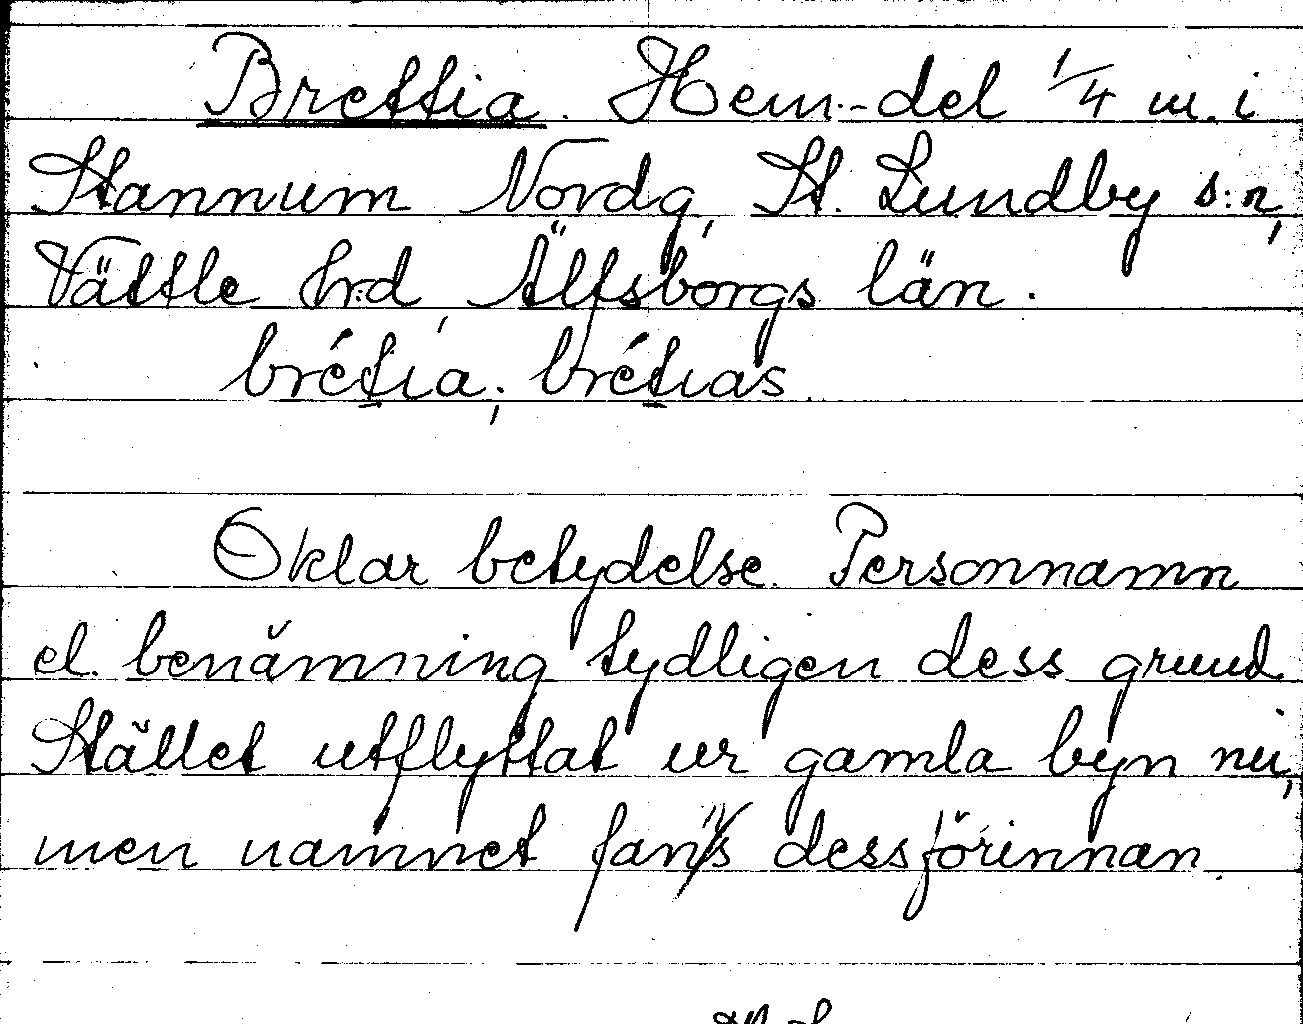 Brettia. Hem.-del 1/4 m. i
Stannum Nordg, St. Lundby s:n,
Vättle hrd, Älfsborgs län.
brétia; brétias.
Oklar betydelse. Personnamn
el. benämning tydligen dess grund.
Stället utflyttat ur gamla byn nu,
men namnet fanns dessförinnan.